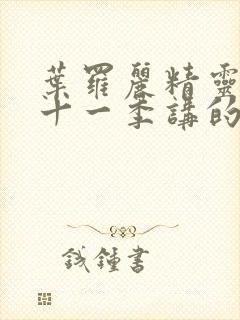 葉羅麗精靈
十一季講的
錢鍾書